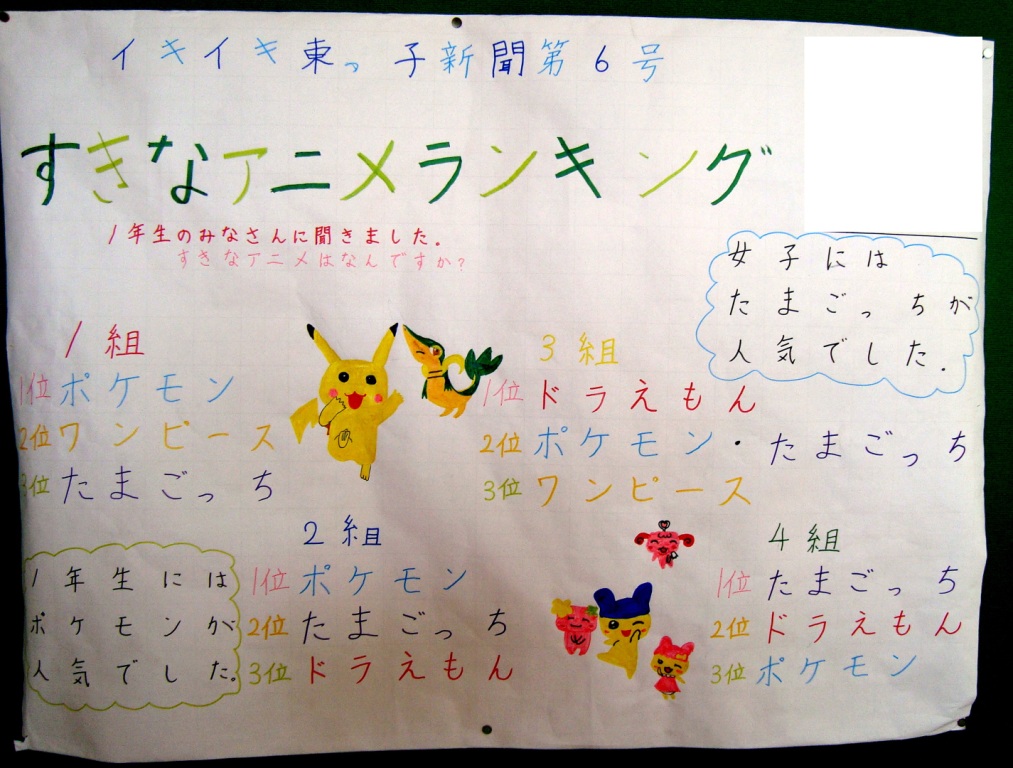 イキイキ東っ子新聞第6号
すきなアニメランキング
1年生のみなさんに聞きました.
すきなアニメはなんですか?
女子には
たまごっちが
人気でした.
1組
1位ポケモン
2位ワンピース
3位たまごっち
3組
1位ドラえもん
2位ポケモン・たまごっち
3位ワンピース
2組
1位ポケモン
2位たまごっち
3位ドラえもん
4組
1位たまごっち
2位ドラえもん
3位ポケモン
1年生には
ポケモンが
人気でした。